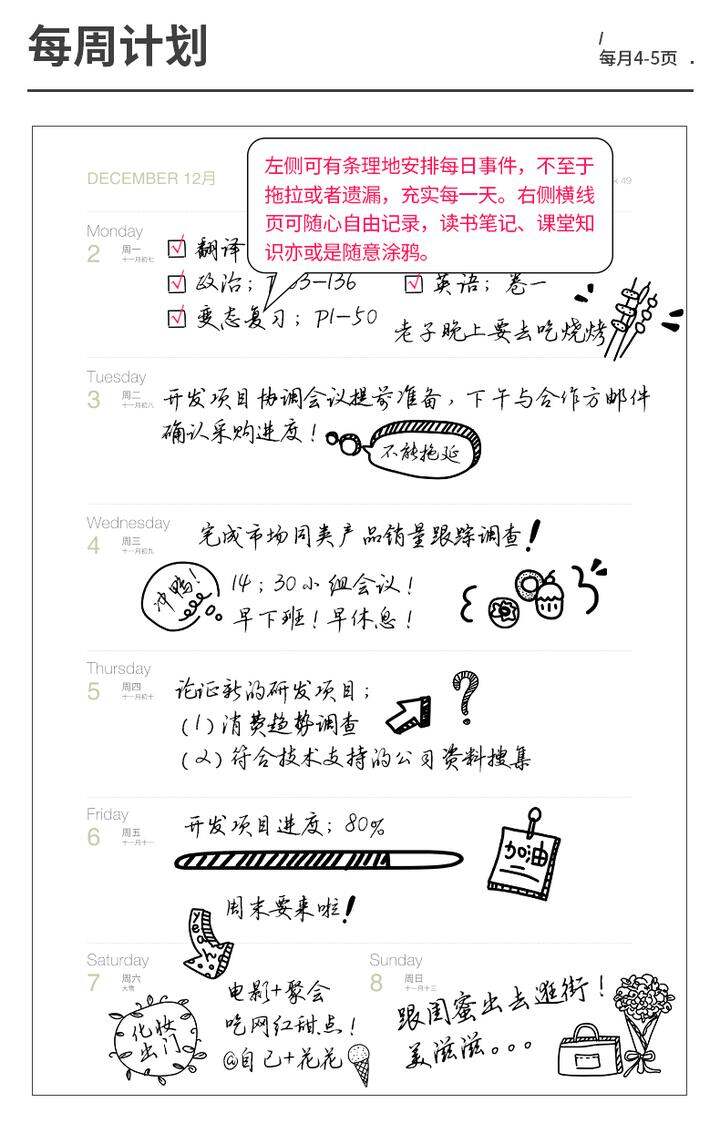 每周计划
/
每月4-5页 .
DECEMBER 12月
49
左侧可有条理地安排每日事件，不至于
拖拉或者遗漏，充实每一天。右侧横线
页可随心自由记录，读书笔记、课堂知
识亦或是随意涂鸦。
Monday
2 周一
十一月初七
翻译
政治； 3-136
英语；卷一
变态复习；P1-50
老子晚上要去吃烧烤
Tuesday
3 周二
十一月初八
开发项目协调会议提前准备，下午与合作方邮件
确认采购进度！
不能拖延
Wednesday
4 周三
十一月初九
完成市场同类产品销量跟踪调查！
冲鸭！
14；30小组会议！
早下班！早休息！
Thursday
5 周四
十一月初十
论证新的研发项目；
(1)消费趋势调查
(2)符合技术支持的公司资料搜集
Friday
6 周五
十一月十一
开发项目进度；80%
加油
周末要来啦！
yeah
Saturday
7 周六
大雪
化妆
出门
电影+聚会
吃网红甜点！
@自己+花花
Sunday
8 周日
十一月十三
跟闺蜜出去逛街！
美滋滋。。。